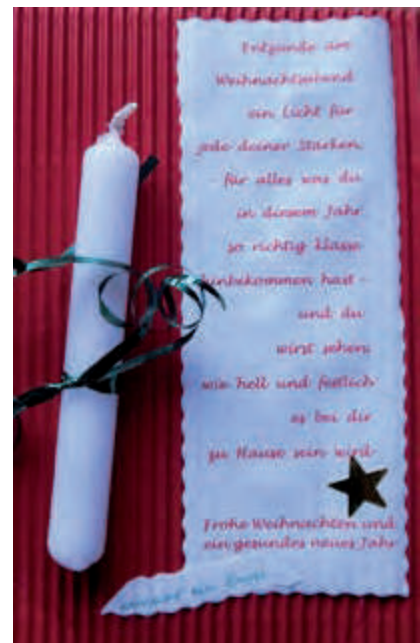 Entzünde am
Weihnachtsabend
ein Licht für
jede deiner Stärken,
für alles was du
in diesem Jahr
so richtig klasse
hinbekommen hast -
und du
wirst sehen
wie hell und festlich
es bei dir
zu Hause sein wird
Frohe Weihnachten und
ein gesundes neues Jahr